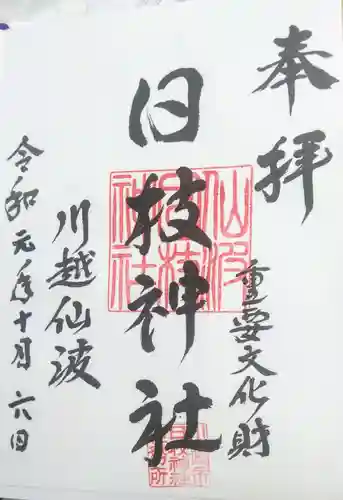 奉拝
重要文化財
日枝神社
川越仙波
令和元年十月六日
仙波
日枝
神社